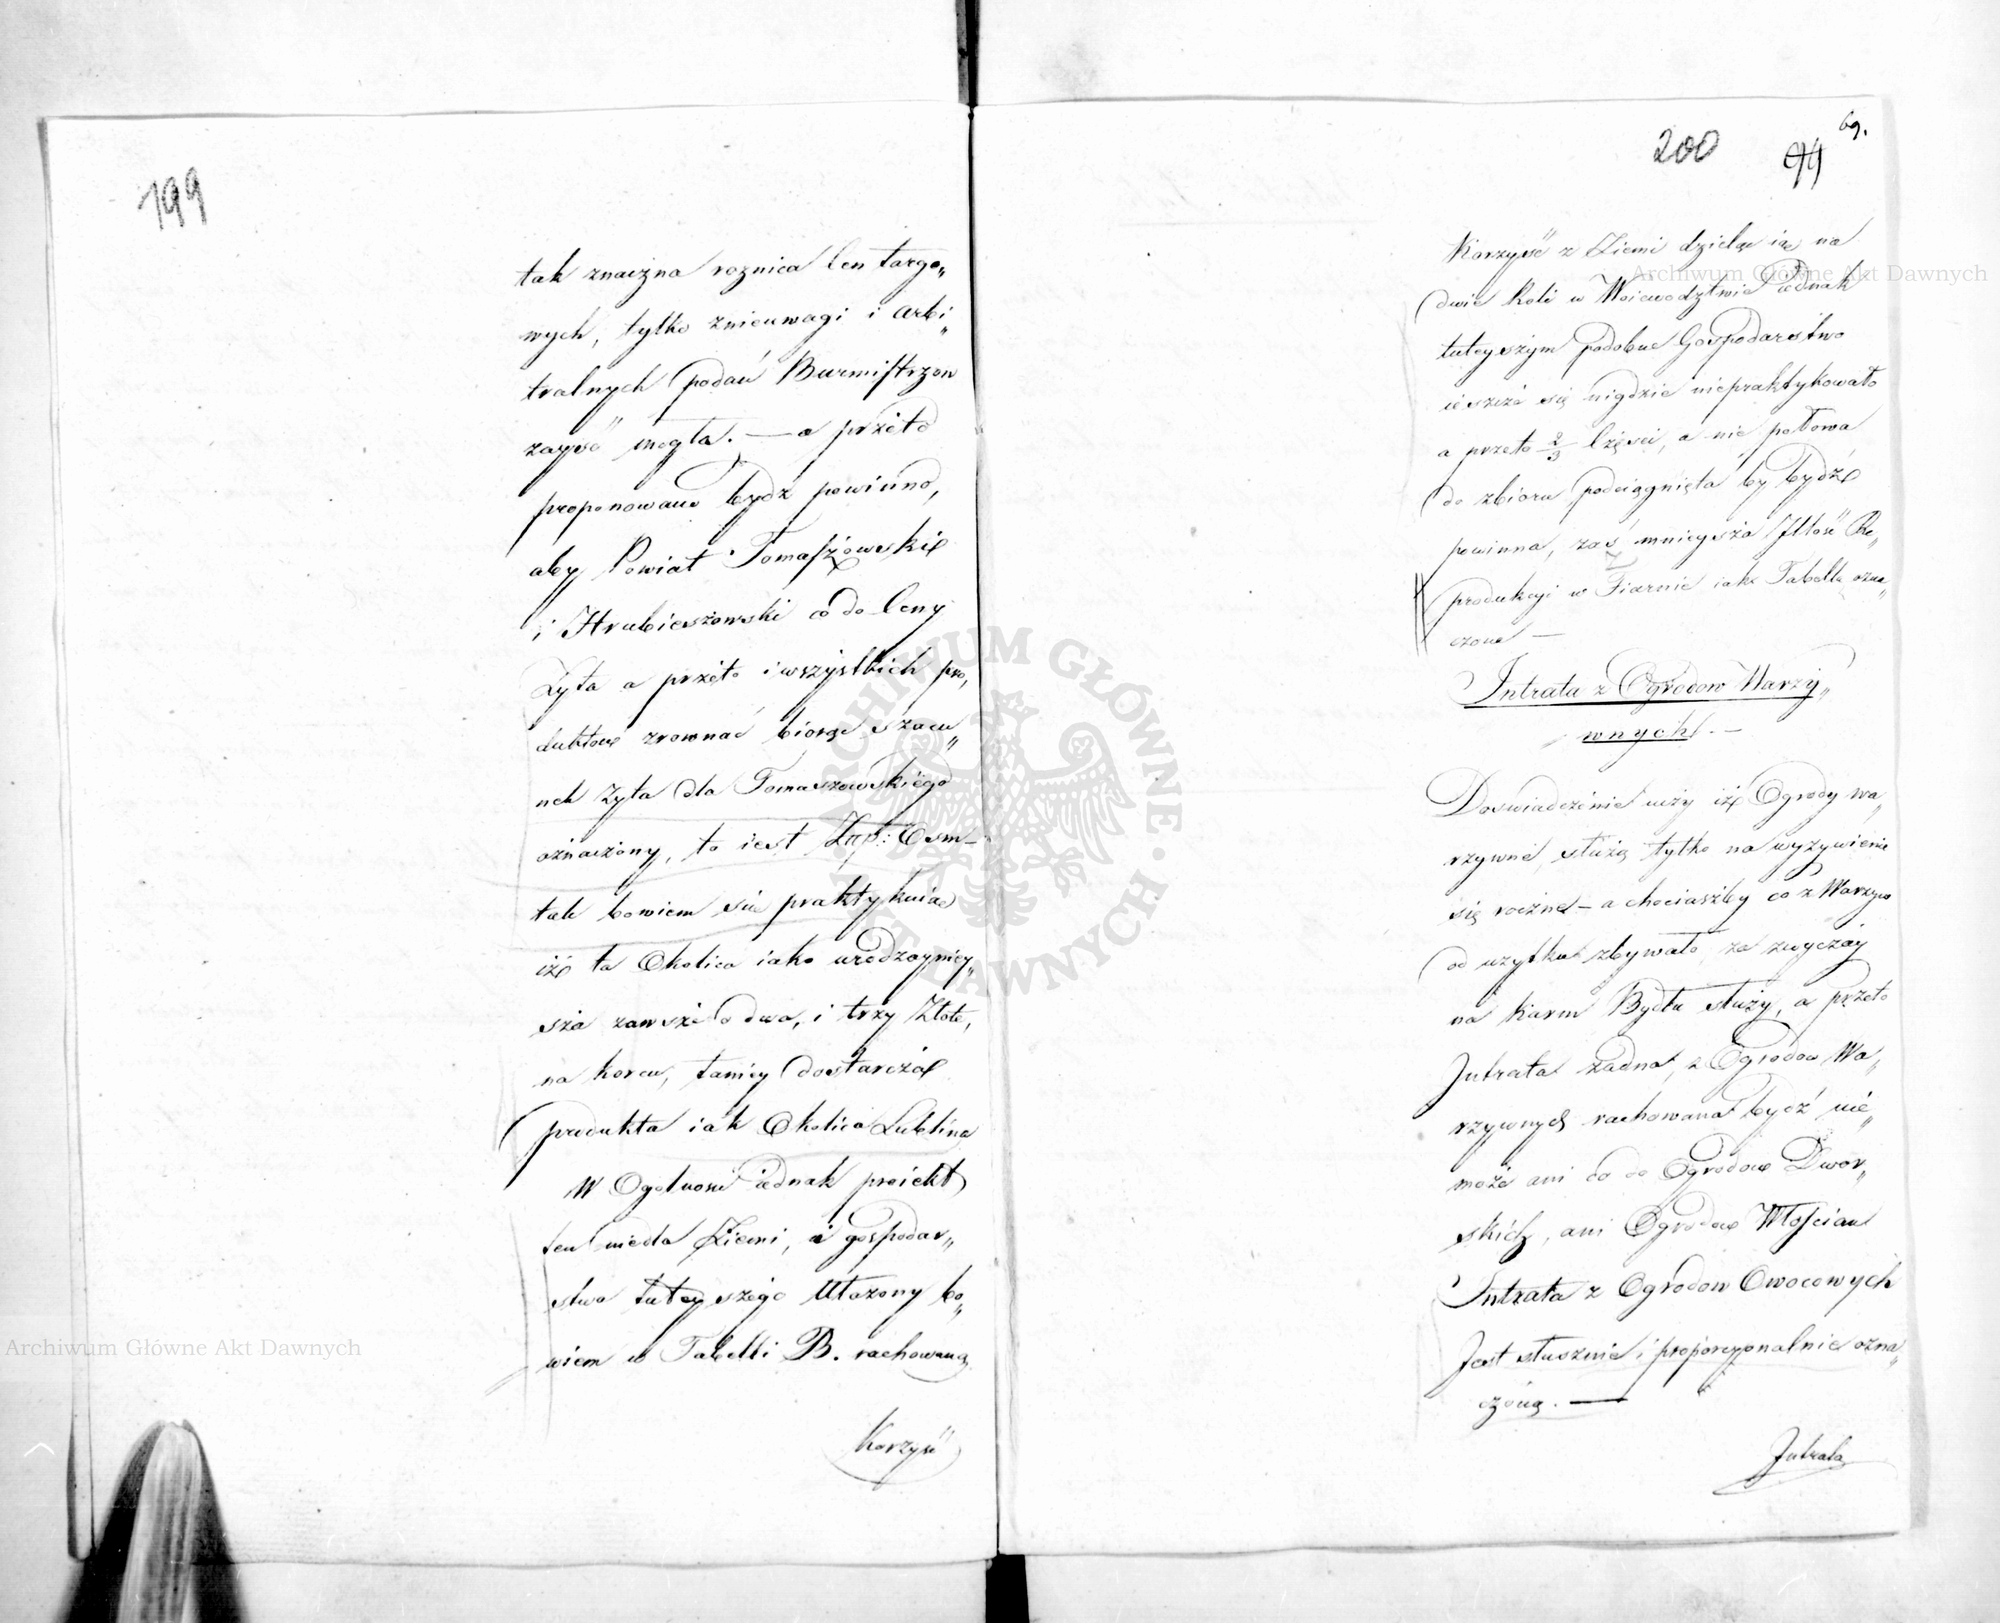 199
tak znaczna roznica Cen targo„
wych, tylko znieuwagi i arbi„
tralnych podań Burmistrzow
zayść mogła. — a przeto
proponowano bydz powinno,
aby Powiat Tomaszowski
i Hrubieszowski co do Ceny
Zyta a przeto i wszystkich pro„
duktow zrownać biorąc szacu„
nek Zyta dla Tomaszowskiego
oznaczony, to iest Złp: Osm —
tak bowiem się praktykuie
iż ta Okolica iako urodzayniey„
sza zawsze o dwa, i trzy Złote,
na korcu, taniey dostarcza
produkta iak Okolica Lublina
W Ogolności iednak proiekt
ten niedla Ziemi, i gospodar„
stwa tuteyszego Ułozony bo„
wiem w Tabelli B. rachowaną
Korzyść
69.
200
99
Korzyść z Ziemi dzieląc ią na
dwie Roli w Woiewodztwie iednak
tuteyszym podobne Gospodarstwo
ieszcze się nigdzie niepraktykowało
a przeto 2/3 Części, a nie połowa
do zbioru podciągnięta by bydź
powinna, zaś mnieysza Ilość Re„
produkcyi w Ziarnie iak Tabella ozna„
czona —
Intrata z Ogrodow Warzy„
wnych. —
Doswiadczenie uczy iż Ogrody wa„
rzywne służą tylko na wyzywienie
się roczne — a chociaszby co z Warzyw
od uzytku zbywało, za zwyczay
na karm Bydłu służy, a przeto
Intrata zadna, z Ogrodow Wa„
rzywnych rachowana bydź nie„
może ani co do Ogrodow Dwor„
skich, ani Ogrodow Włościan
Intrata z Ogrodow Owocowych
Jest słusznie i proporcyonalnie ozna„
czona. —
Intrata
Archiwum Główne Akt Dawnych
Archiwum Główne Akt Dawnych
ARCHIWUM GŁÓWNE · AKT DAWNYCH ·